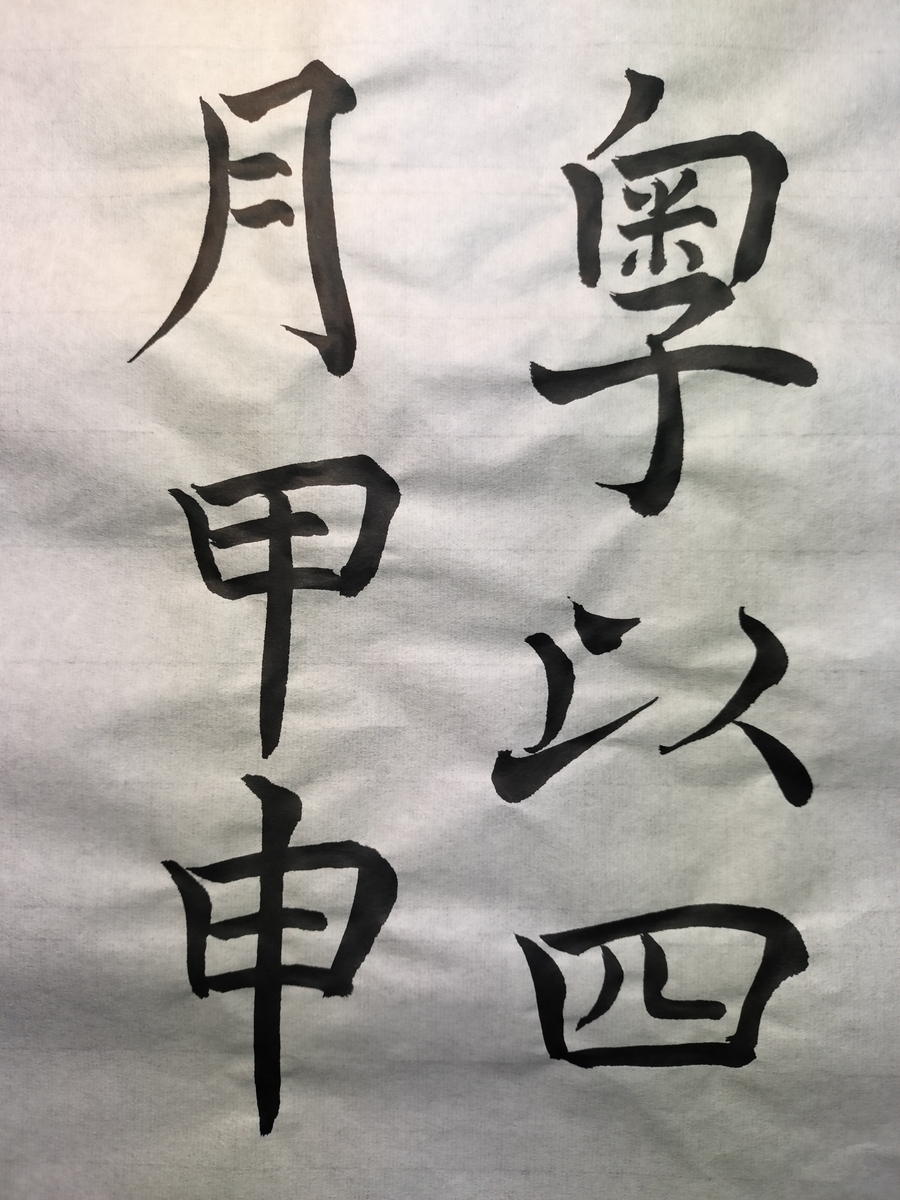 粤以四
月甲申